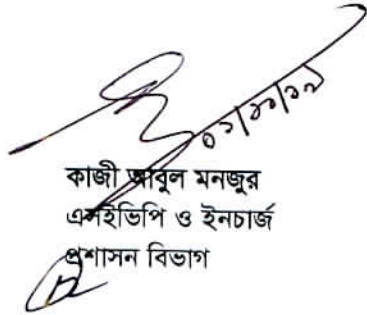 ০১/১০/১৯
কাজী আবুল মনজুর
এসইভিপি ও ইনচার্জ
প্রশাসন বিভাগ